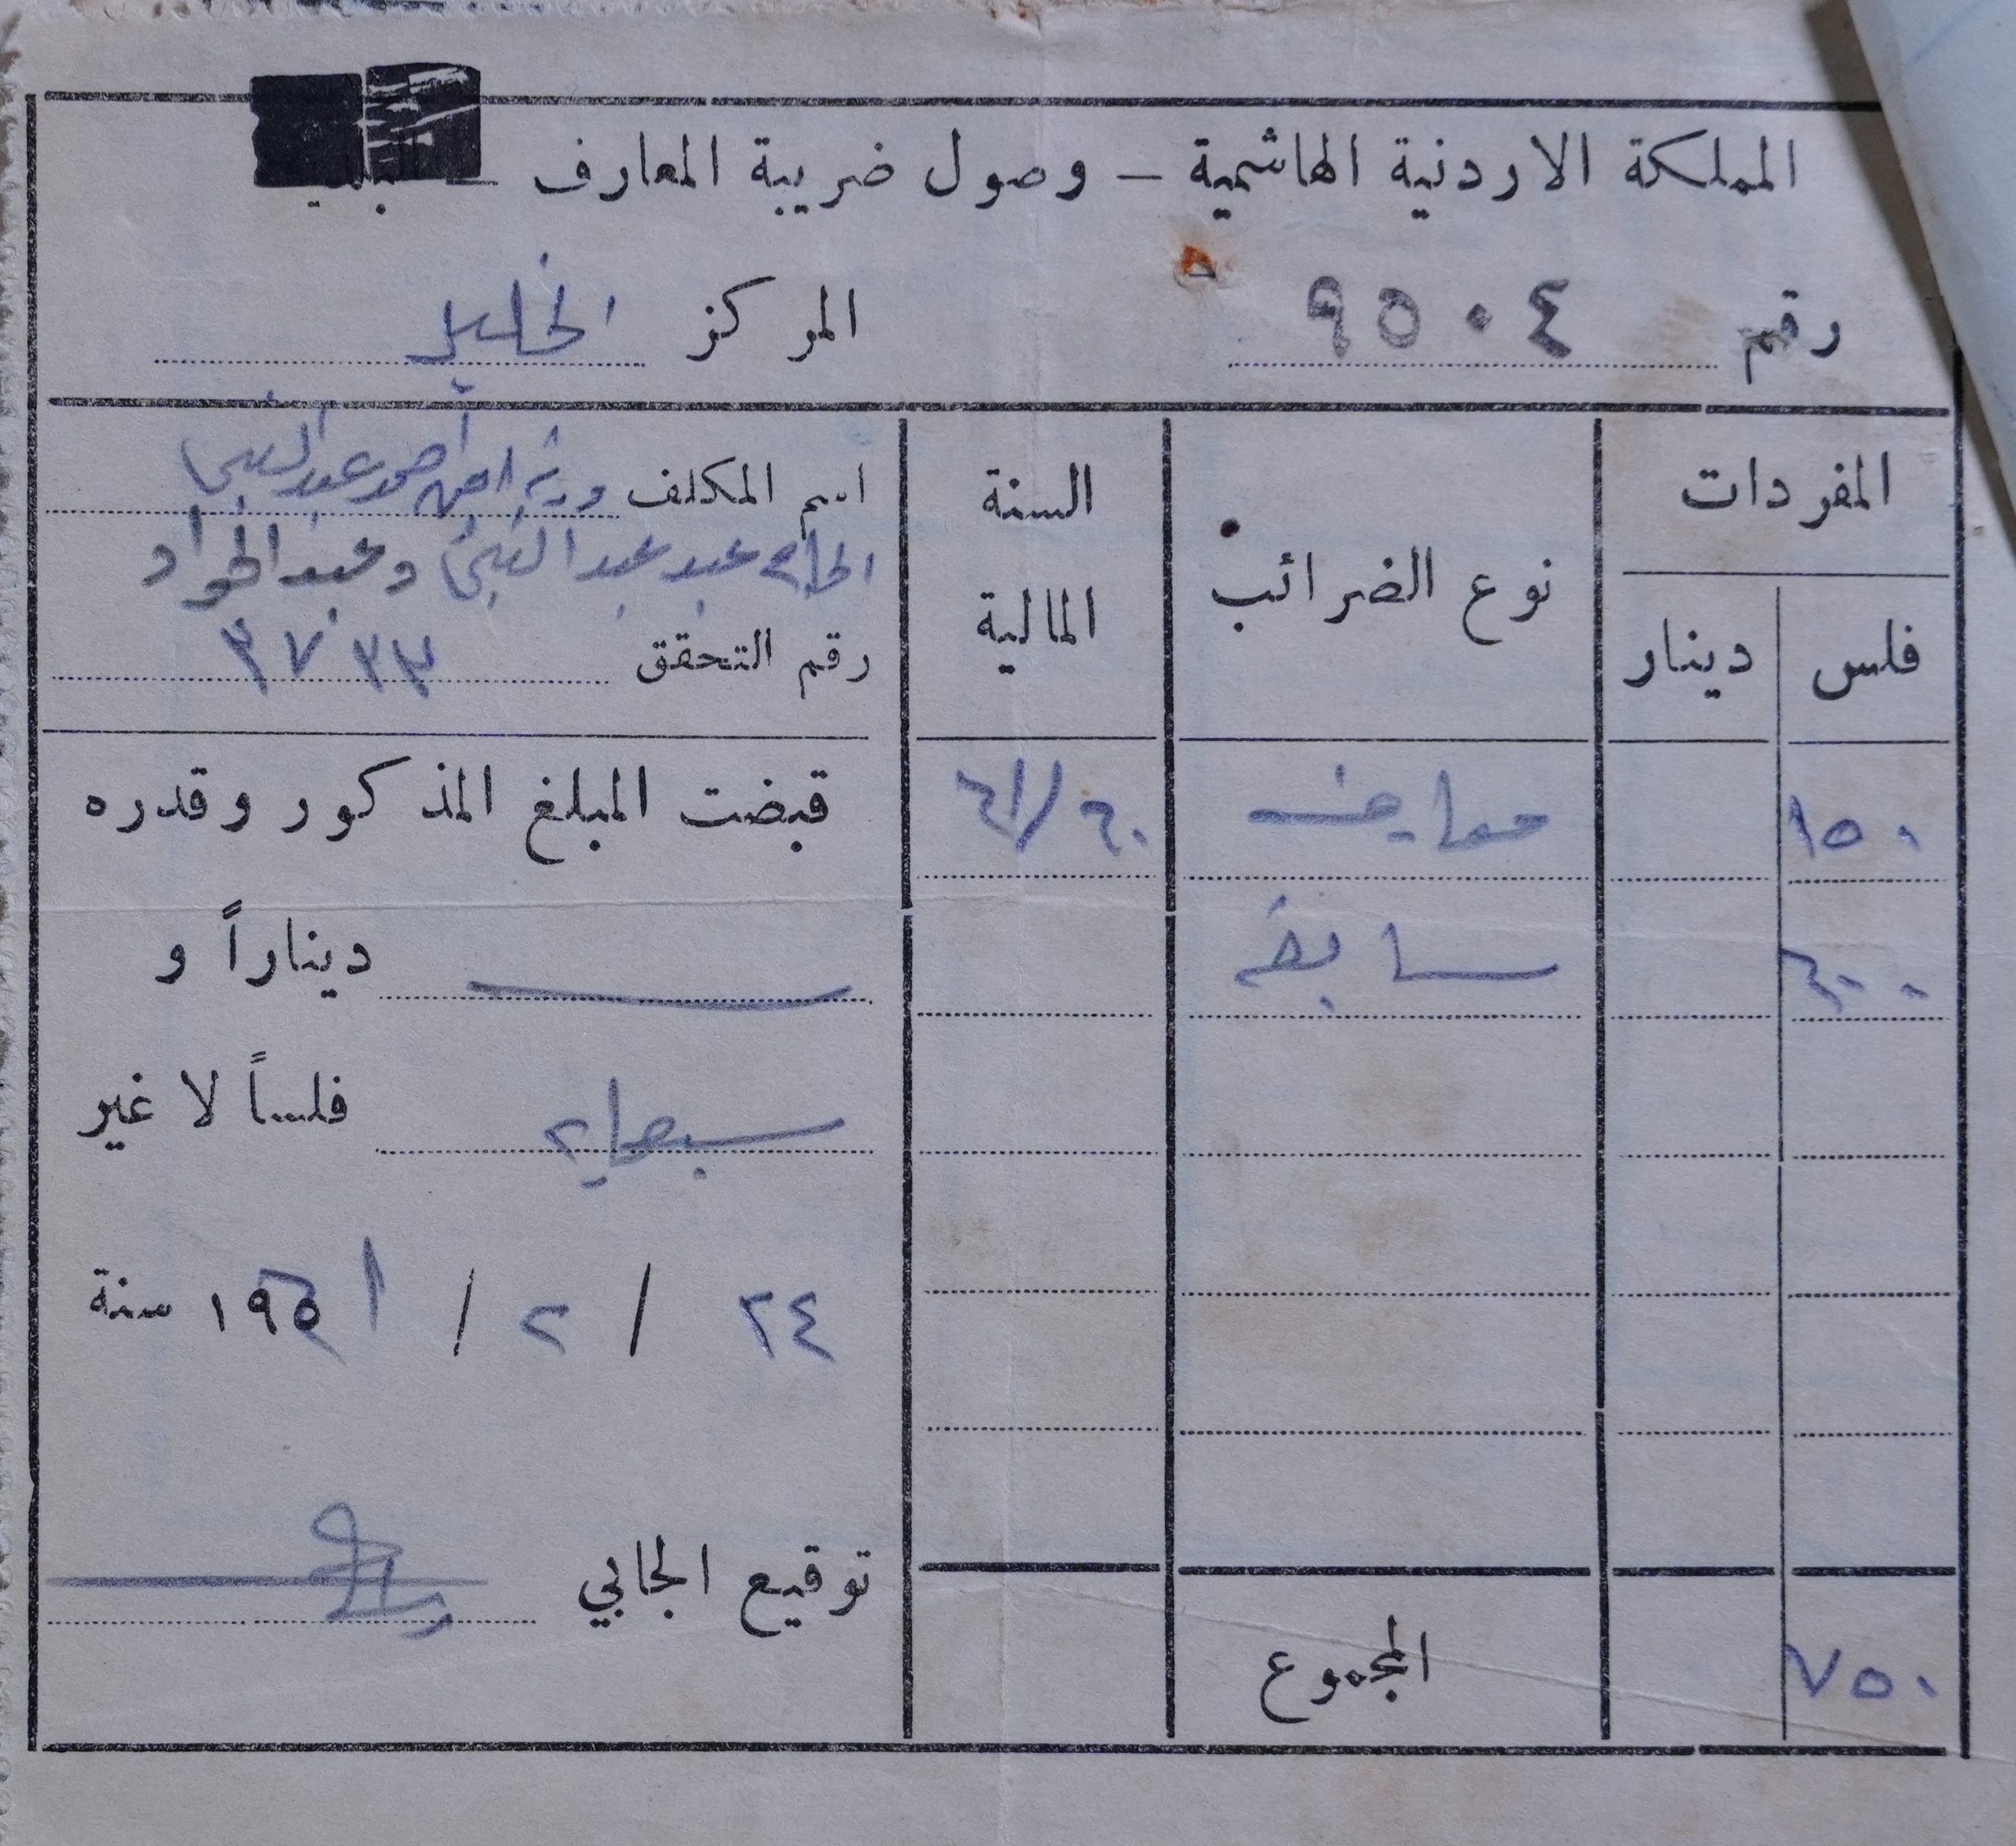 المملكة الاردنية الهاشمية – وصول ضريبة المعارف –
رقم ٩٥٠٤
المركز الخليل
المفردات
فلس دينار
نوع الضرائب
السنة المالية
اسم المكلف احمد عبد النبي
عبد عبد النبي وعبد الجواد
رقم التحقق ٣٧٣٣
١٥٠ معارف ٦١/٦٠
٦٠٠ سابقة
قبضت المبلغ المذكور وقدره
ديناراً و
فلساً لا غير
٢٤ / ٢ / ١٩٦١ سنة
توقيع الجابي
المجموع ٧٥٠